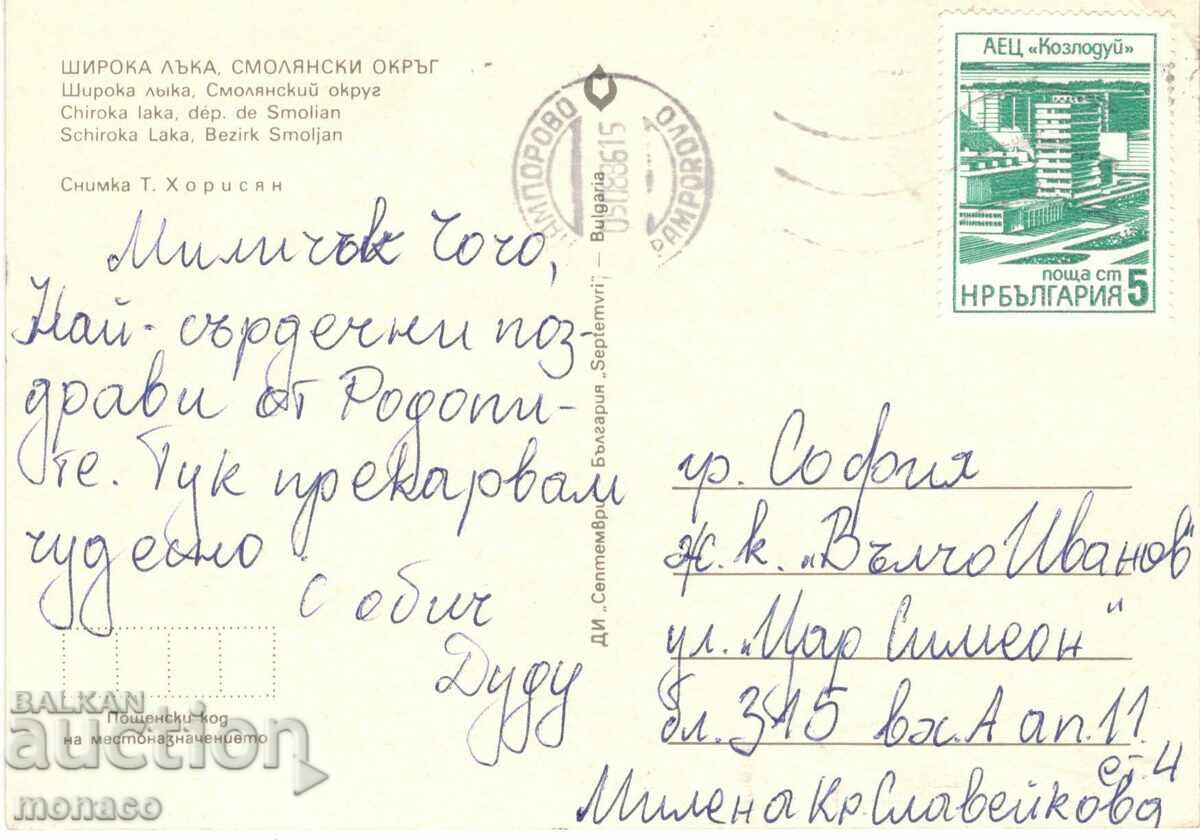 ШИРОКА ЛЪКА, СМОЛЯНСКИ ОКРЪГ
Широка лыка, Смолянский округ
Chiroka laka, dép. de Smolian
Schiroka Laka, Bezirk Smoljan
Снимка Т. Хорисян
Миличък Чочо,
Най-сърдечни поз-
драви от Родопи-
те. Тук прекарвам
чудесно
с обич
Дуду
Пощенски код
на местоназначението
ДИ „Септември" България „Septemvri" – Bulgaria
АЕЦ «Козлодуй»
поща ст
НРБЪЛГАРИЯ 5
гр. София
ж.к. „Вълчо Иванов"
ул. „Цар Симеон"
бл. 315 вх. А ап. 11.
ет. 4
Милена Кр. Славейкова
BALKAN
auction
monaco